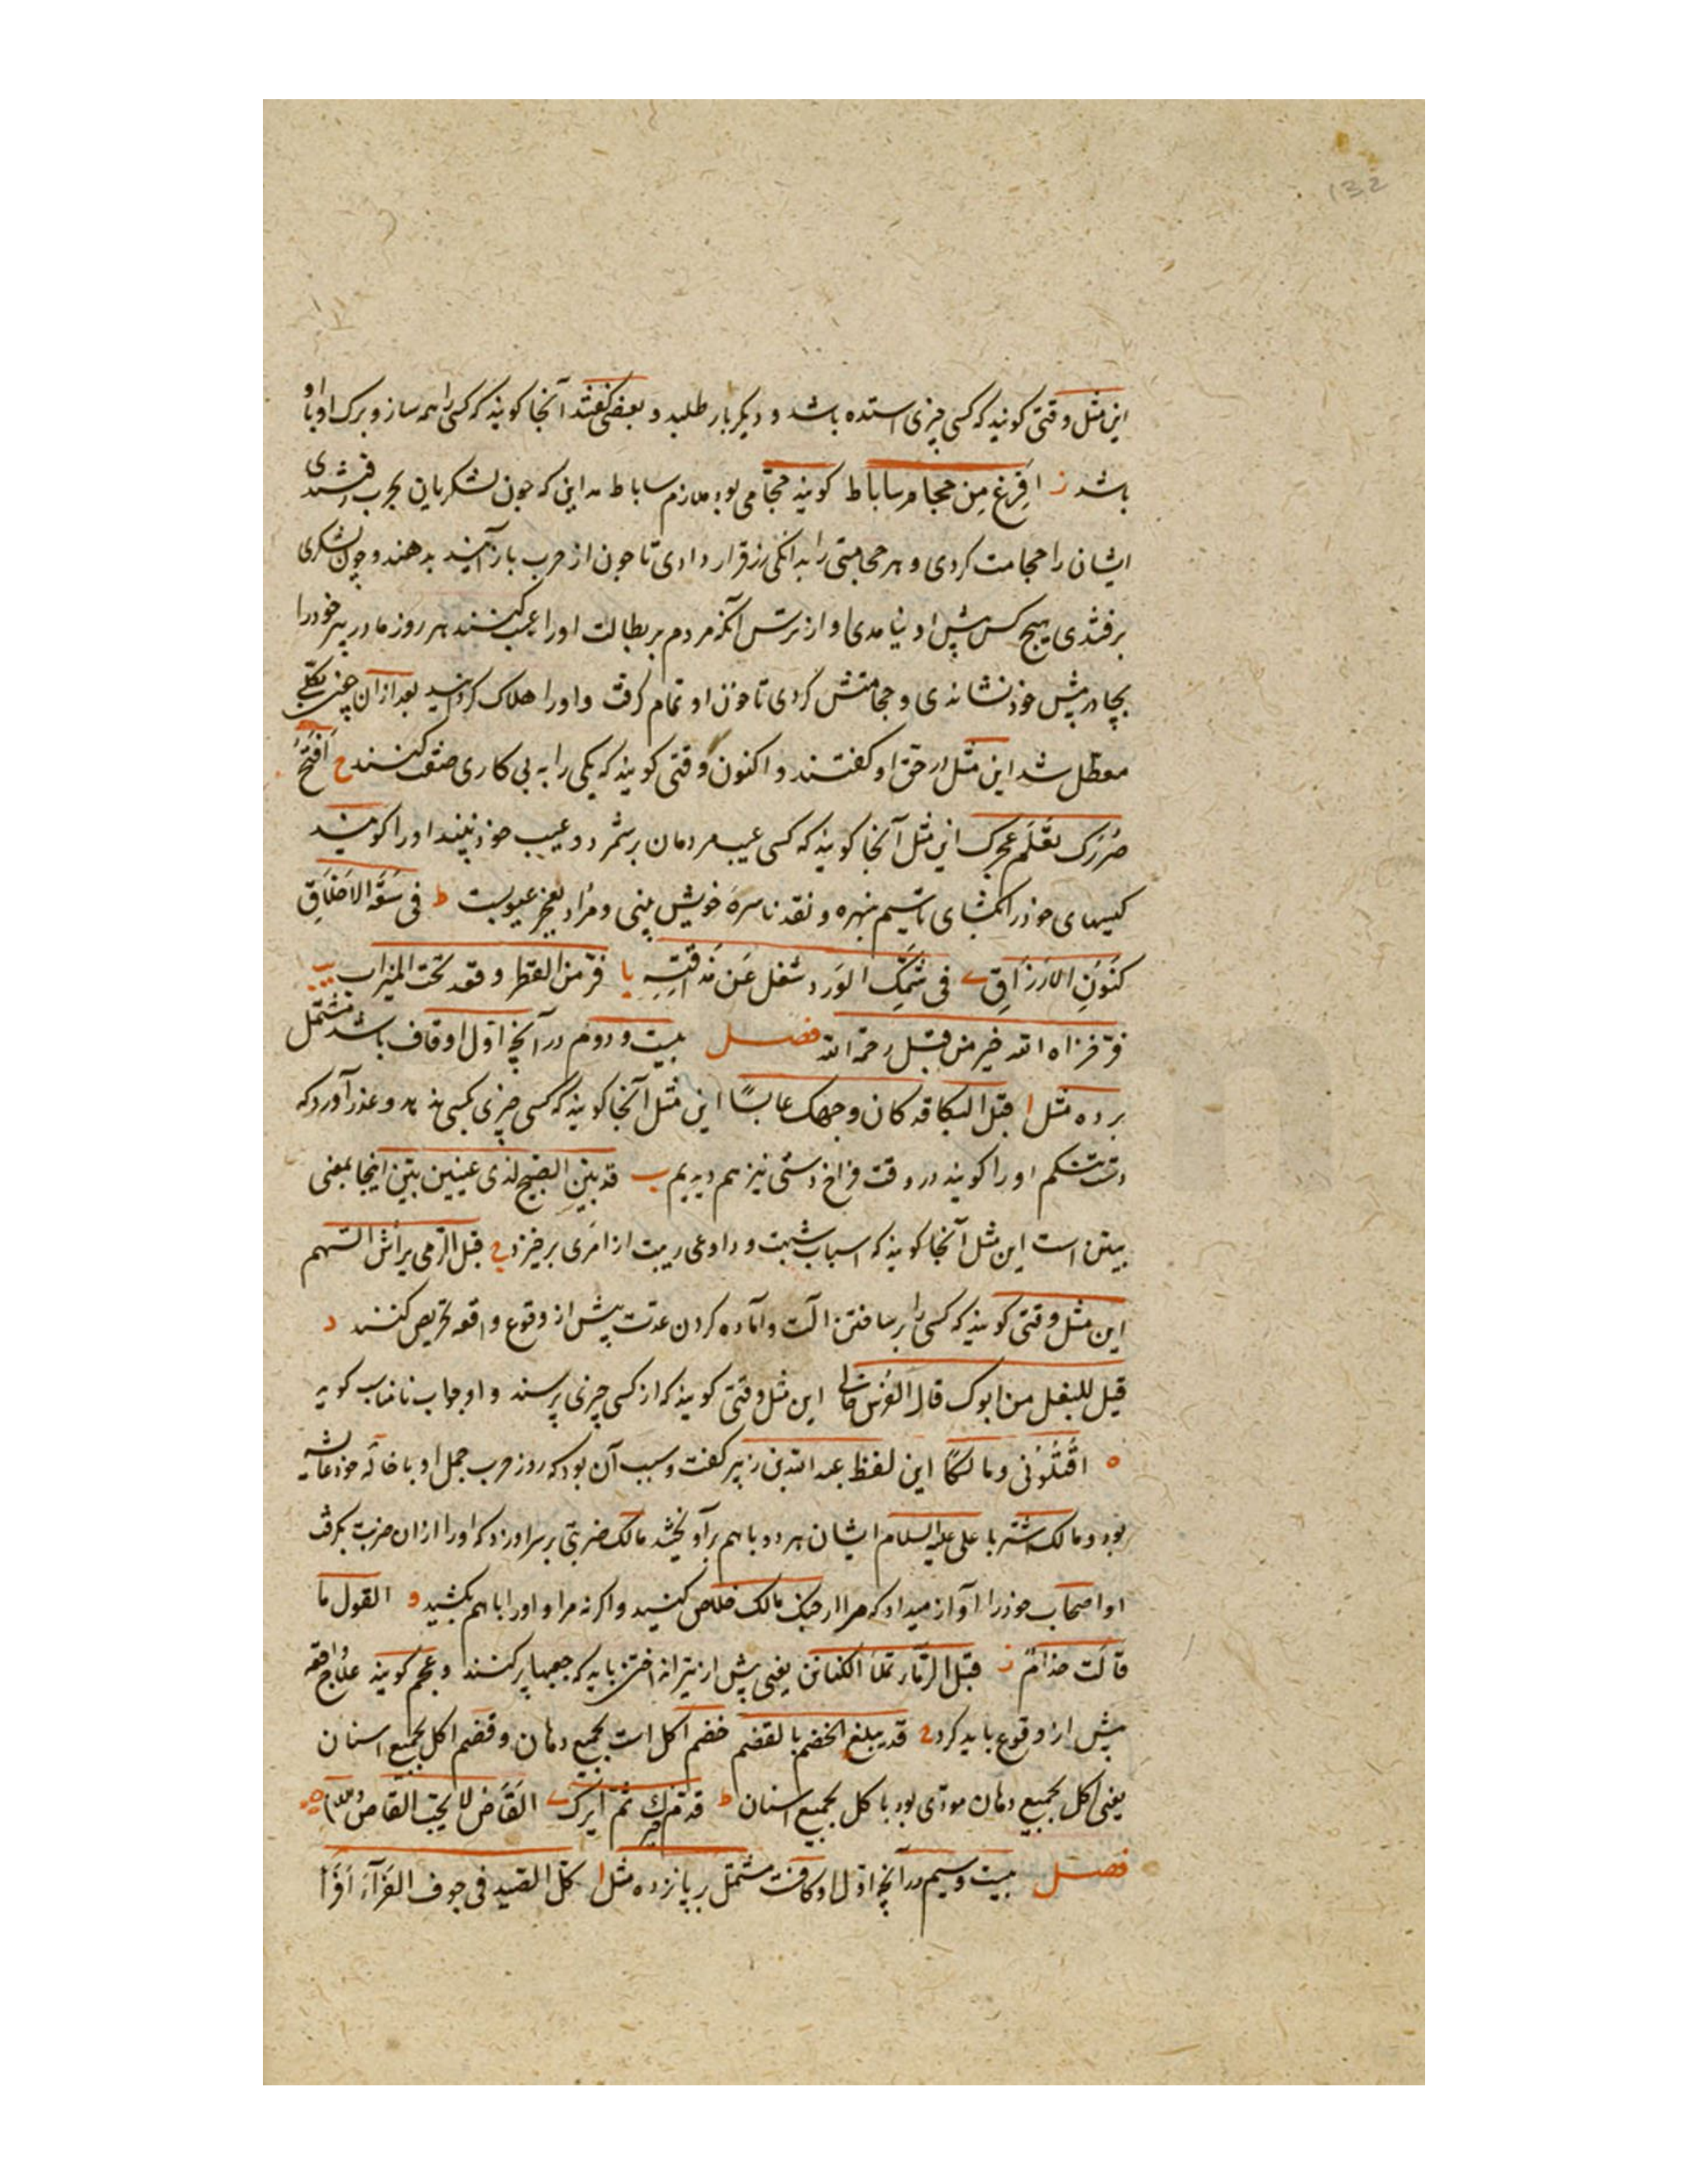 132
این مثل وقتی کویند که کسی چیزی استده باشد و دیکر بار طلبد و بعضی کفتند آنجا کویند که کسی را همه ساز و برک او با او
باشد ز افرغ من حجام ساباط کویند حجامی بود ملازم ساباط مداین که چون لشکریان بحرب رفتندی
ایشان را حجامت کردی و هر حجامتی را بدانکی زر قرار دادی تا چون از حرب باز آیند بدهند و چون لشکری
برفتندی هیچ کس پیش او نیامدی او از ترس آنکه مردم بر بطالت او را عیب کنند هر روز مادر پیر خود را
بچادر پیش خود نشاندی و حجامتش کردی تا خون او تمام برفت و او را هلاک کردانید بعد از آن چون بکلی
معطل شد این مثل در حق او کفتند و اکنون وقتی کویند که یکی را به بی کاری صفت کنند ح افتح
صررک تعلم عجرک این مثل آنجا کویند که کسی عیب مردمان برشمرد و عیب خود نبیند او را کویند
کیسهای خود را بکشای تا سیم نبهره و نقد ناسره خویش بینی و مراد بعجر عیوبست ط فی سعة الاخلاق
کنوز الارزاق ی فی شمک الورد شغل عن مذاقته یا فر من القطر و قعد تحت المیزاب یب
فر فزاه الله خیر من قتل رحمه الله فصل بیست و دوم در آنچه اول او قاف باشد مشتمل
بر ده مثل ا قبل البکا قد کان وجهک عابسا این مثل آنجا کویند که کسی چیزی بکسی ندهد و عذر آورد که
دست تنکم او را کویند در وقت فراخ دستی نیز هم دیدیم ب قد بین الصبح لذی عینین بین اینجا بمعنی
بیّن است این مثل آنجا کویند که اسباب شبهت و دواعی ریبت از امری برخیزد ج قبل الرمی یراش السهم
این مثل وقتی کویند که کسی را بر ساختن آلت و آماده کردن عدت پیش از وقوع واقعه تحریص کنند د
قیل للبغل من ابوک قال الفرس خالی این مثل وقتی کویند که از کسی چیزی پرسند و او جواب نامناسب کوید
ه اقتلونی و مالکا این لفظ عبد الله بن زبیر کفت و سبب آن بود که روز حرب جمل او با خاله خود عایشه
بود و مالک اشتر با علی علیه السلام ایشان هر دو با هم برآویختند مالک ضربتی بر سر او زد که او را از آن ضربت بکرفت
او اصحاب خود را آواز میداد که مرا از چنک مالک خلاص کنید و اکر نه مرا و او را با هم بکشید و القول ما
قالت حذام ز قبل الرماء تملأ الکنائن یعنی پیش از تیر انداختن باید که جعبها پر کنند و عجم کویند علاج واقعه
پیش از وقوع باید کرد ح قد یبلغ الخضم بالقضم خضم اکل است بجمیع دهان و قضم اکل بجمیع اسنان
یعنی اکل بجمیع دهان مودی بود باکل بجمیع اسنان ط قدم خیرک ثم ایرک ی القاص لا یحب القاص
فصل بیست و سیم در آنچه اول او کافست مشتمل بر پانزده مثل ا کل الصید فی جوف الفرآء